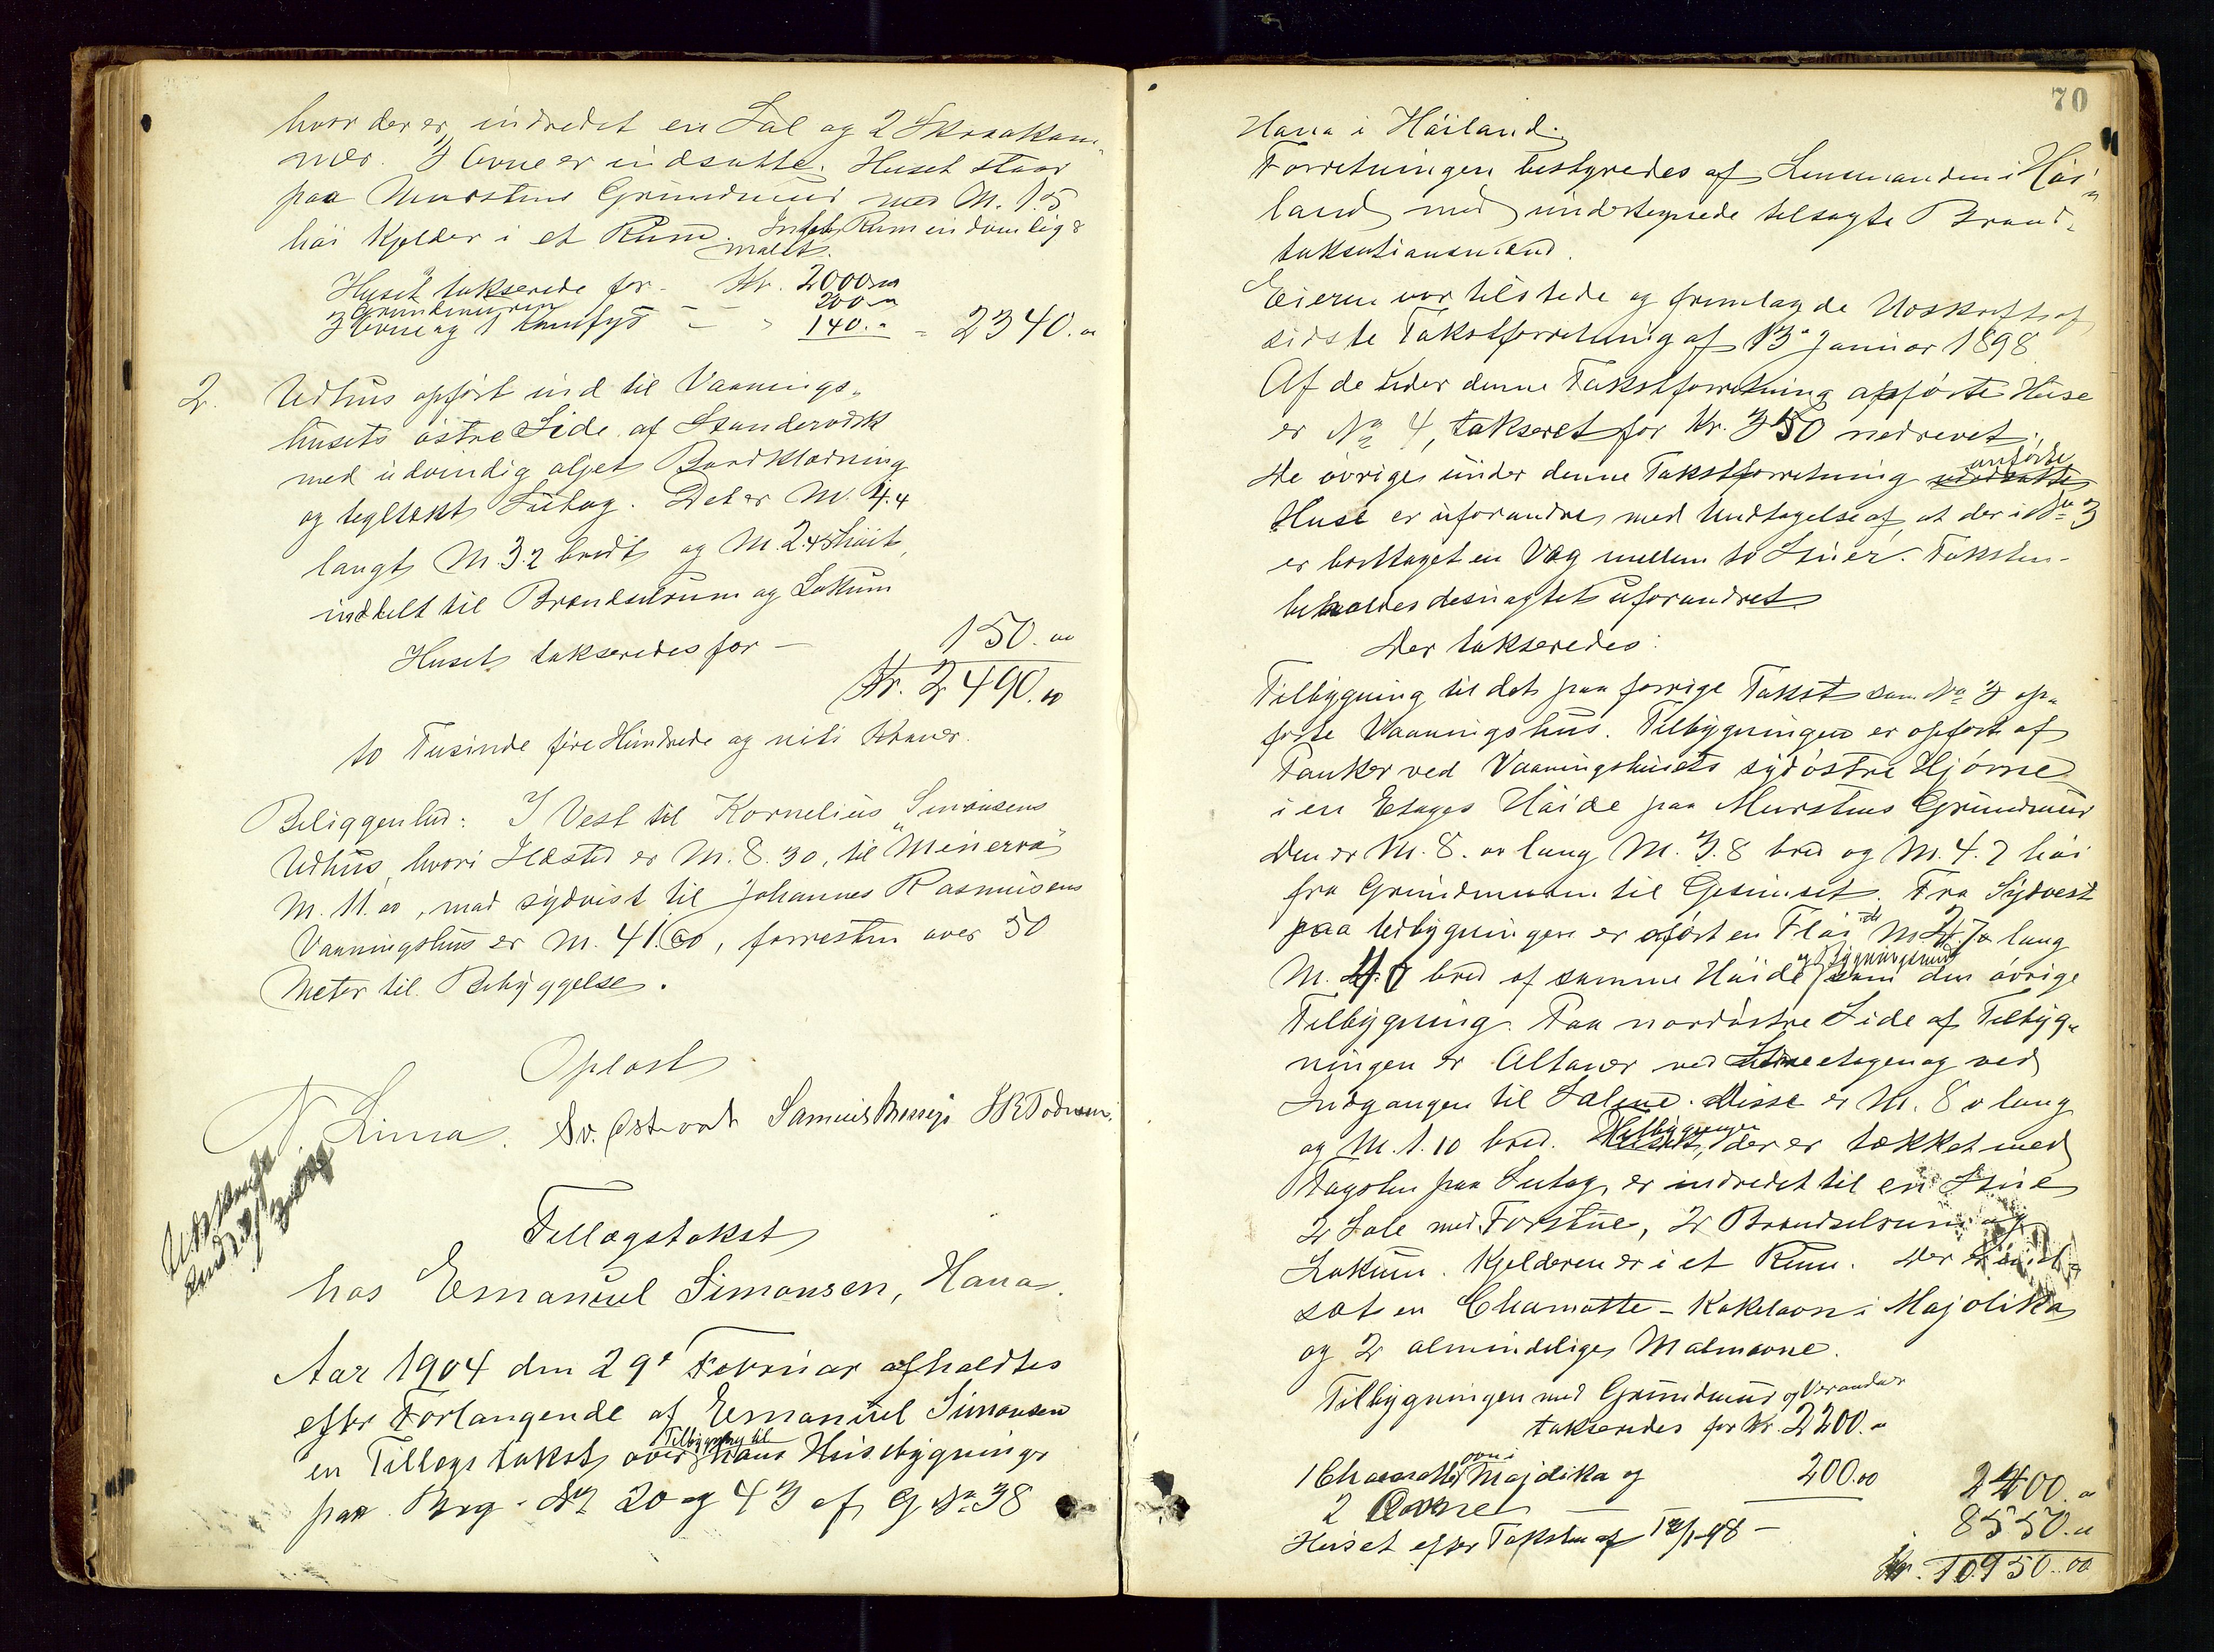 hvor der er indredet en Sal og 2 Skraakam-
mer. 3 Ovne er indsatte. Huset staar
paa Murstens Grundmur med M. 1.5
höi Kjelder i et Rum. Rum indvendig
malet.
Huset takserede for - Kr. 2000.00
Grundmuren 200.00
3 Ovne og 1 Komfyr - - 140.00 = 2340.00
2. Udhus opfört ind til Vaanings-
husets östre Side af Standervärk
med udvendig oljet Bordklædning
og tegltækt Sutag. Det er M. 4.4
langt M. 3.2 bredt og M. 2.45 höit,
inddelt til Brændselrum og Lokum
Huset takseredes for - 150.00
Kr. 2490.00
to Tusinde fire Hundrede og niti Kroner.
Beliggenhed: I Vest til Kornelius Simonsens
Udhus, hvori Ildsted er M. 8.30, til "Minerva"
M. 11.00, mod sydvest til Johannes Rasmusens
Vaaningshus er M. 41.60, forresten over 50
Meter til Bebyggelse.
Oplæst
N. Lima. Sv. Østravat Samuel
Udskrevet
Tillægstakst
hos Emanuel Simonsen, Hana.
Aar 1904 den 29' Februar afholdtes
efter Forlangende af Emanuel Simonsen
en Tillægstakst over Tilbygning til hans Husebygninger
paa Brg. No 20 og 43 af G No 38
70
Hana i Höiland.
Forretningen bestyredes af Lensmanden i Höi-
land med undertegnede tilsagte Brand-
taksationsmænd.
Eieren var tilstede og fremlagde Udskrift af
sidste Takstforretning af 13' Januar 1898
Af de under denne Takstforretning opförte Huse
er No 4, takseret for Kr. 350 nedrevet.
De övrige under denne Takstforretning anförte
Huse er uforandret med Undtagelse af, at der i No 3
er borttaget en Væg mellem to Stuer. Taksten
beholdes desuagtet uforandret
Der takseredes:
Tilbygning til det paa forrige Takst som No 3 op-
förte Vaaningshus. Tilbygningen er opfört af
Planker ved Vaaningshusets sydöstre Hjörne
i en Etages Höide paa Murstens Grundmur
Den er M. 8.00 lang M. 3.8 bred og M. 4.7 höi
fra Grundmuren til Gesimset. Fra Sydvest
paa tilbygningen er opfört en Flöi M 2.70 lang
M. 4.0 bred af samme Höide og Bygningsmaade som den övrige
Tilbygning. Paa nordöstre Side af Tilbyg-
ningen er Altaner ved etagen og ved
Indgangen til Salene. Disse er M. 8.0 lang
og M. 1.10 bred. Tilbygningen, der er tækket med
Tagsten paa Sutag, er indredet til en Stue
2 Sale med Forstue, 2 Brændselrum og
Lokum. Kjelderen er i et Rum. Der er ind-
sat en Chamotte-Kakelovn i Majolika
og 2 almindelige Malmovne.
Tilbygningen med Grundmur og Verandaer
takseredes for Kr. 2200.00
1 Chamotte ovn i Majolika og 200.00
2 Ovne - 2400.00
Huset efter Taksten af 13/1-98 - 8550.00
Kr. 10950.00